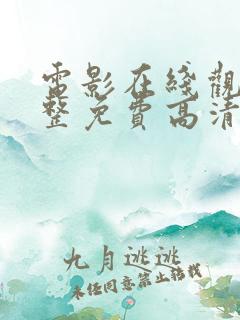 電影在綫觀
整免費高清
九月逃逃
未經同意禁止轉載